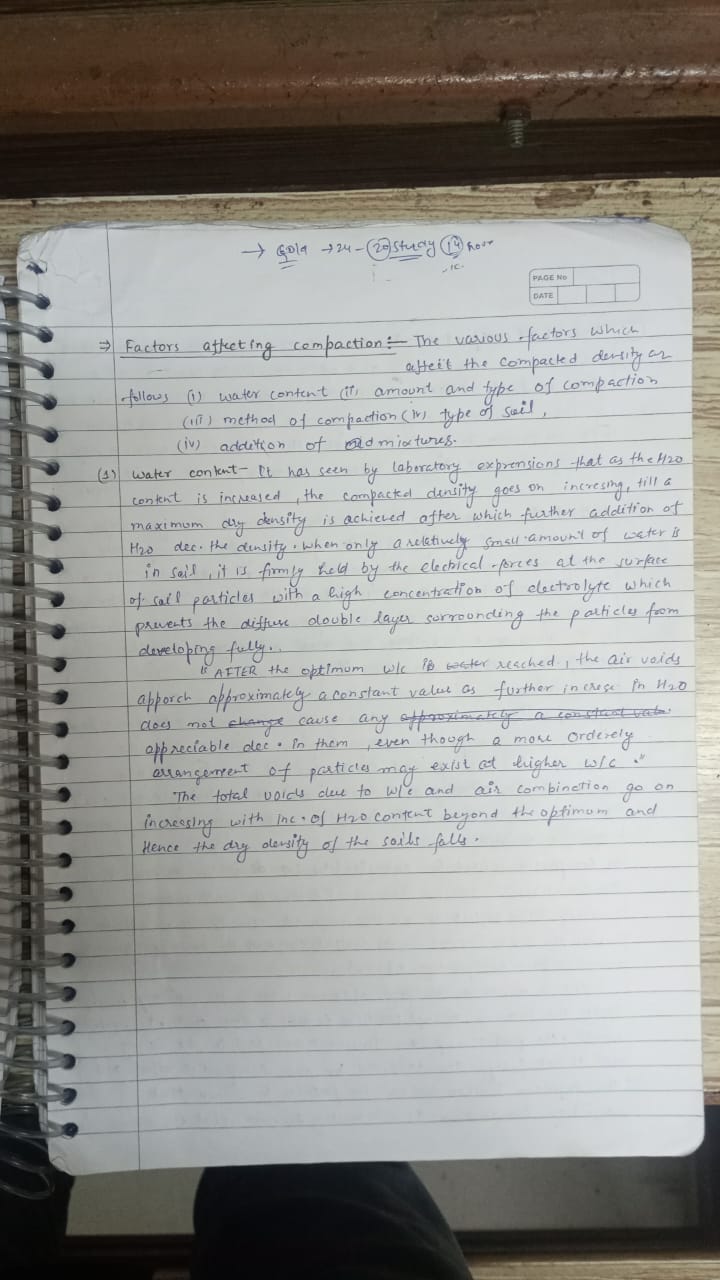 → Gola → 24 - 20 study 14 hour
PAGE No
DATE
⇒ Factors affecting compaction:- The various factors which
affect the compacted density as
follows (i) water content (ii) amount and type of compaction
(iii) method of compaction (iv) type of soil,
(iv) addition of admixtures.
(1) water content- It has seen by laboratory exprensions that as the H2O
content is increased, the compacted density goes on incresing, till a
maximum dry density is achieved after which further addition of
H2O dec. the density. when only a relatively small amount of water is
in soil, it is firmly held by the electrical forces at the surface
of soil particles with a high concentration of electrolyte which
prevents the diffuse double layer sorrounding the particles from
developing fully.
" AFTER the optimum w/c is reached, the air voids
apporch approximately a constant value as further increse in H2O
does not change cause any approximately a constant
appreciable dec. in them, even though a more orderely
arrangement of particles may exist at higher w/c."
The total voids due to w/c and air combinction go on
increasing with inc. of H2O content beyond the optimum and
Hence the dry density of the soils falls.